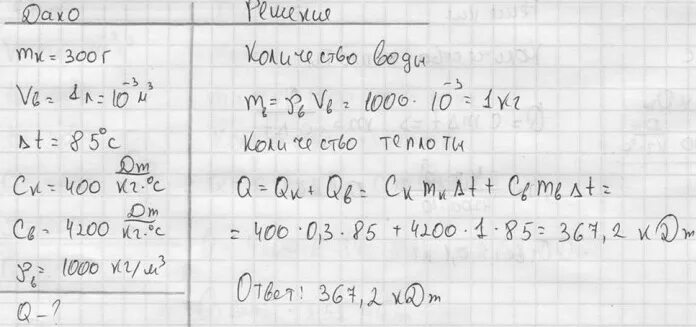 Дано
mк = 300 г
Vв = 1 л = 10⁻³ м³
Δt = 85°c
Cк = 400 Дж/кг·°c
Cв = 4200 Дж/кг·°c
ρв = 1000 кг/м³
Q - ?
Решение
Количество воды
mв = ρв Vв = 1000 · 10⁻³ = 1 кг
Количество теплоты
Q = Qк + Qв = Cк mк Δt + Cв mв Δt =
= 400 · 0,3 · 85 + 4200 · 1 · 85 = 367,2 кДж
Ответ: 367,2 кДж